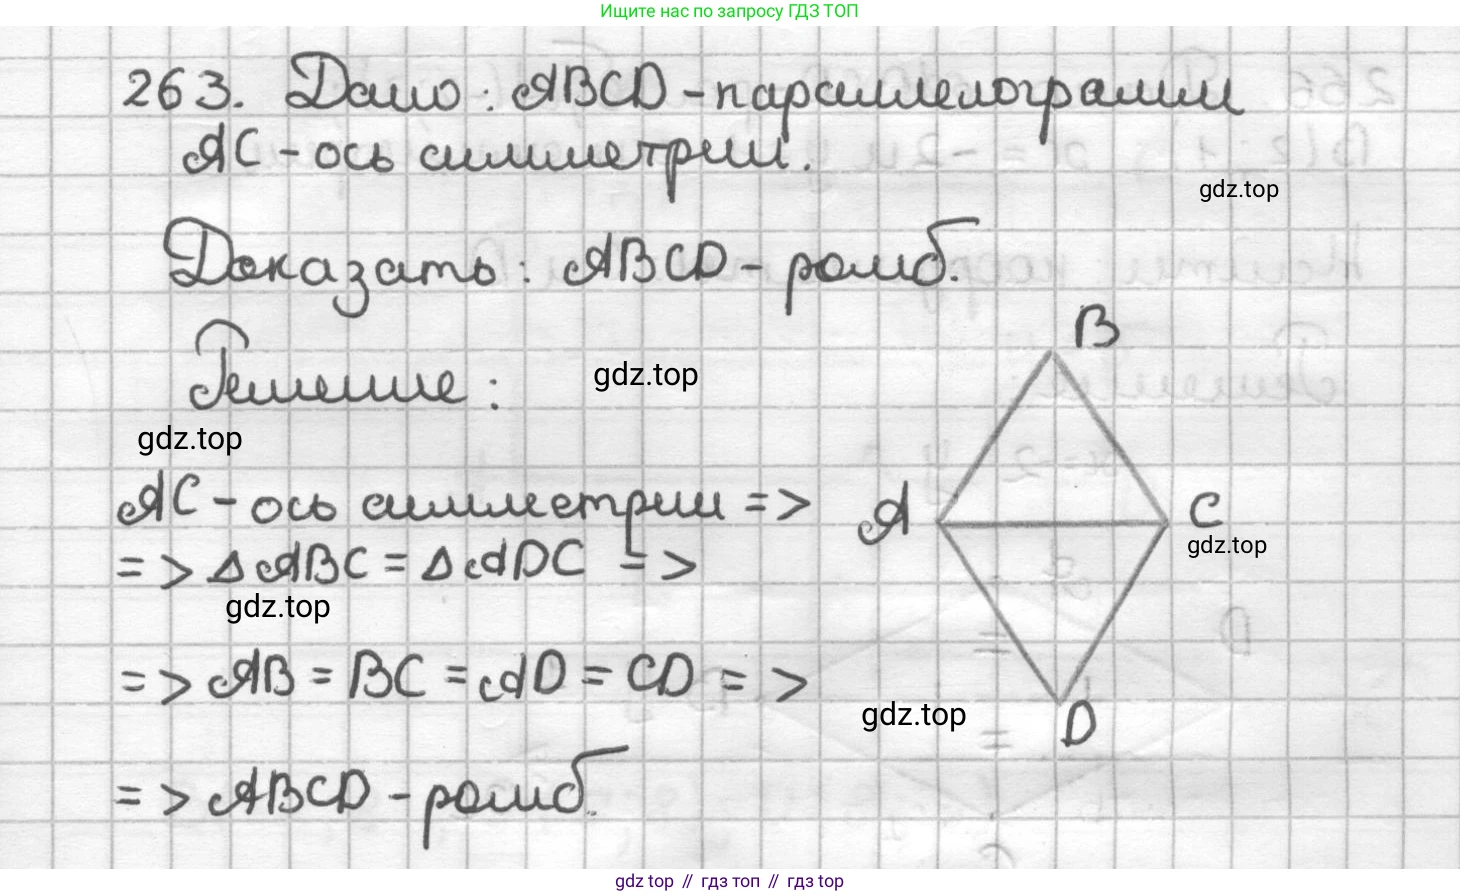 Ищите нас по запросу ГДЗ ТОП
263. Дано: ABCD - параллелограмм
AC - ось симметрии.
gdz.top
Доказать: ABCD - ромб.
B
Решение:
gdz.top
gdz.top
AC - ось симметрии =>
A
C
gdz.top
=> △ABC = △ADC =>
gdz.top
=> AB = BC = AD = CD =>
gdz.top
D
=> ABCD - ромб.
gdz top // гдз топ // гдз top